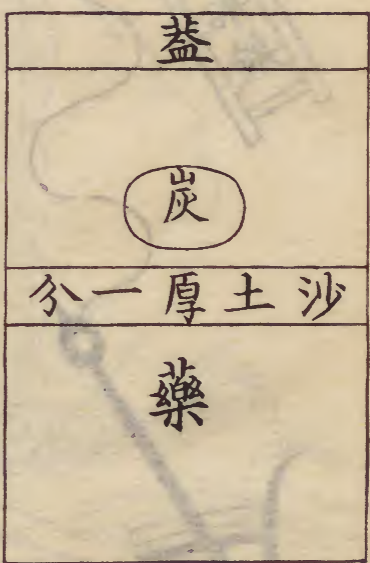 葢
炭
沙土厚一分
藥